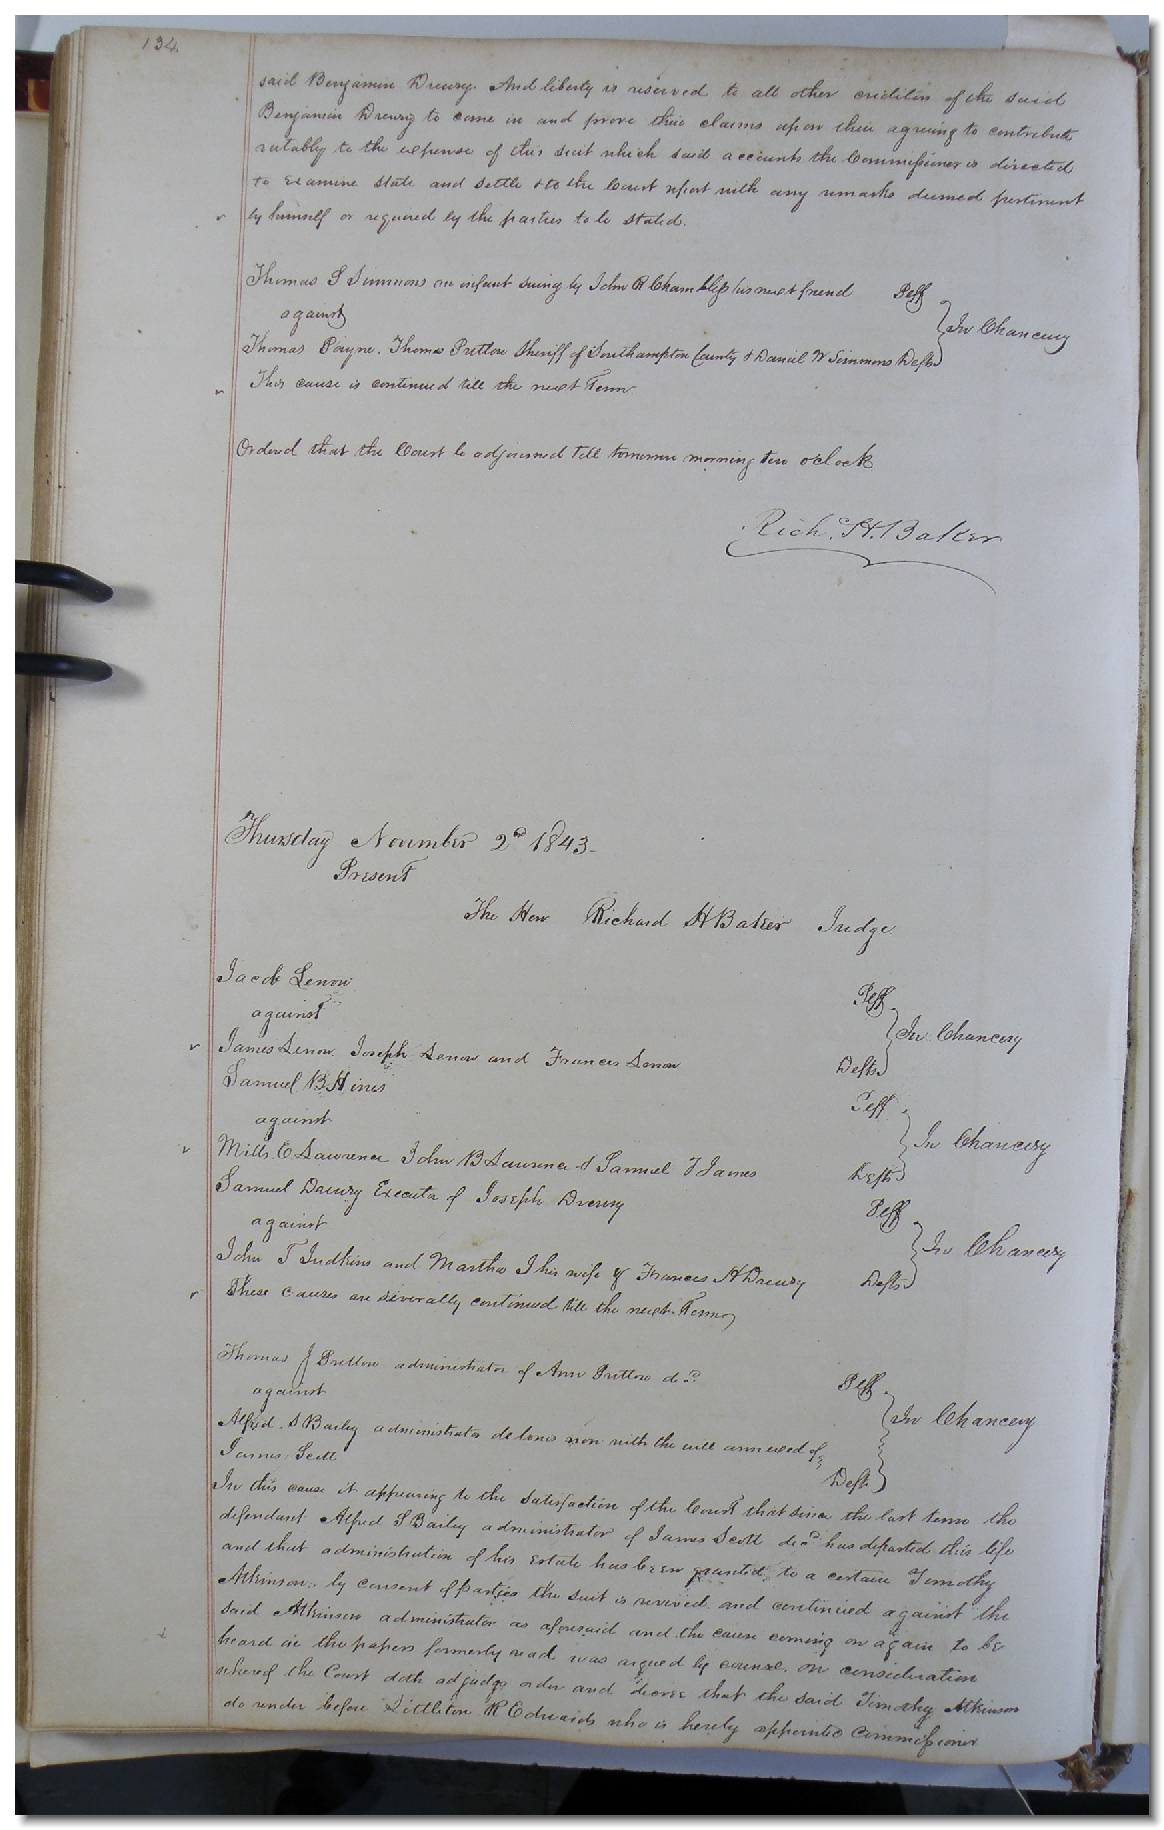 134
said Benjamin Drewry. And liberty is reserved to all other creditors of the said
Benjamin Drewry to come in and prove their claims upon their agreeing to contribute
ratably to the expense of this suit which said accounts the Commissioner is directed
to examine state and settle & to the Court report with any remarks deemed pertinent
by himself or required by the parties to be stated.
Thomas S Simmons an infant suing by John R Chambliss his next friend Plff
against
In Chancery
Thomas Payne. Thomas Pretlow Sheriff of Southampton County & Daniel W Simmons Defts
This cause is continued till the next Term
Ordered that the Court be adjourned till tomorrow morning ten o'clock
Richd. H. Baker
Thursday November 2d 1843-
Present
The Hon Richard H Baker Judge
Jacob Lenow Plff
against
In Chancery
James Lenow Joseph Lenow and Frances Lenow Defts
Samuel B Hines Plff
against
In Chancery
Mills C Lawrence John B Lawrence & Samuel T James Defts
Samuel Drewry Executor of Joseph Drewry Plff
against
In Chancery
John T Judkins and Martha J his wife & Frances A Drewry Defts
These causes are severally continued till the next Term
Thomas J Pretlow administrator of Ann Pretlow decd Plff
against
In Chancery
Alfred S Bailey administrator de bonis non with the will annexed of
James Scott Deft
In this cause it appearing to the satisfaction of the Court that since the last term the
defendant Alfred S Bailey administrator of James Scott decd has departed this life
and that administration of his Estate has been granted to a certain Timothy
Atkinson, by consent of parties the suit is revived and continued against the
said Atkinson administrator as aforesaid and the cause coming on again to be
heard in the papers formerly read was argued by counsel on consideration
whereof the Court doth adjudge order and decree that the said Timothy Atkinson
do render before Littleton R Edwards who is hereby appointed Commissioner